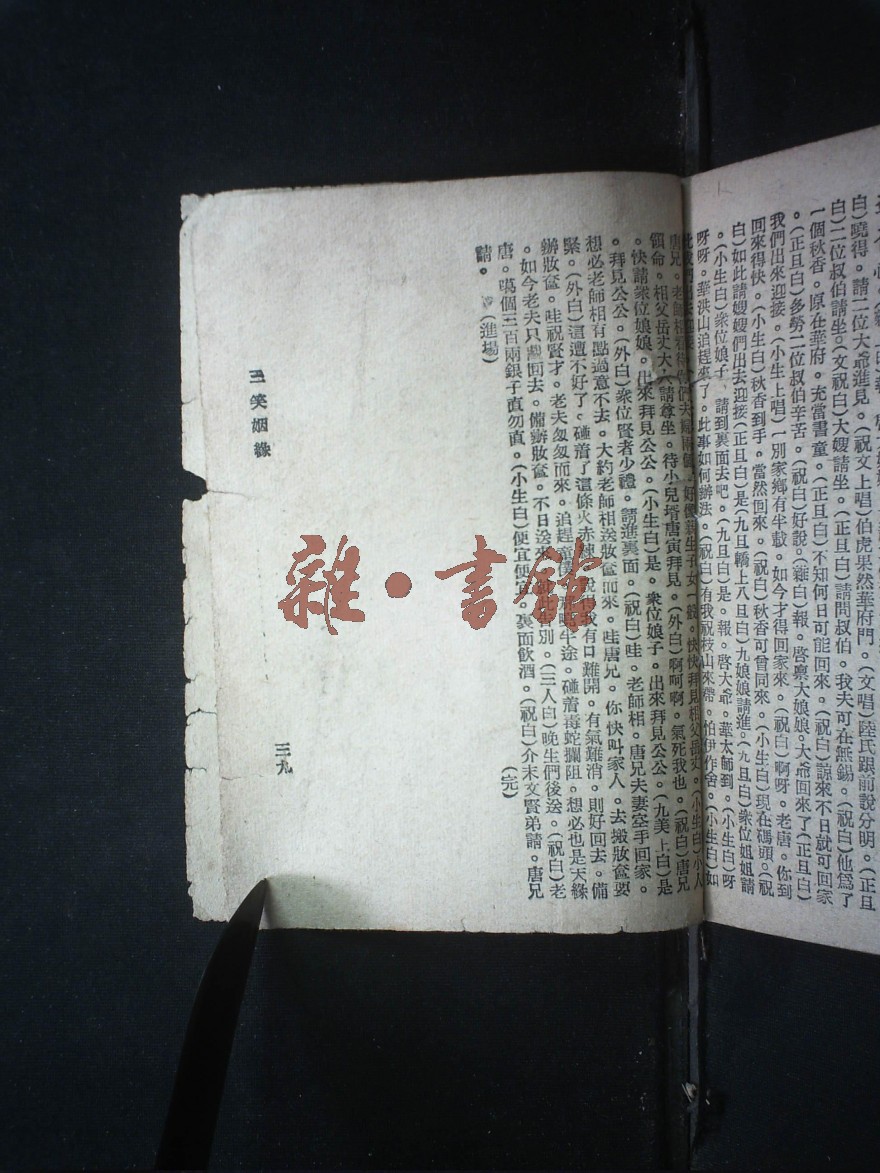 白)曉得。請二位大爺進見。(祝文上唱)伯虎果然華府門。(文唱)陸氏跟前說分明。(正旦
白)二位叔伯請坐。(文祝白)大嫂請坐。(正旦白)請問叔伯。我夫可在無錫。(祝白)他爲了
一個秋香。原在華府。充當書童。(正旦白)不知何日可能回來。(祝白)諒來不日就可回家
。(正旦白)多勞二位叔伯辛苦。(祝白)好說。(雜白)報。啓禀大娘娘。大爺回來了(正旦白)
我們出來迎接。(小生上唱)一別家鄉有半載。如今才得回家來。(祝白)啊呀。老唐。你到
回來得快。(小生白)秋香到手。當然回來。(祝白)秋香可曾同來。(小生白)現在碼頭。(祝
白)如此請嫂嫂們出去迎接(正旦白)是(九旦轎上八旦白)九娘娘請進。(九旦白)衆位姐姐請
。(小生白)衆位娘子。請到裏面去吧。(九旦白)是。報。啓大爺。華太師到。(小生白)呀
呀呀。華洪山追趕來了。此事如何辦法。(祝白)有我祝枝山來帶。怕伊作舍。(小生白)如
唐兄。老師相 們夫婦兩個。好像親生子女一般。快快拜見相父岳丈。(小生白)小人
領命。相父岳丈大人請尊坐。待小兒壻唐寅拜見。(外白)啊呵啊。氣死我也。(祝白)唐兄
。快請衆位娘娘。出來拜見公公。(小生白)是。衆位娘子。出來拜見公公。(九美上白)是
。拜見公公。(外白)衆位賢者少禮。請進裏面。(祝白)哇。老師相。唐兄夫妻空手回家。
想必老師相有點過意不去。大約老師相送妝奩而來。哇唐兄。你快叫家人。去搬妝奩要
緊。(外白)這遭不好了。碰着了這條火赤練。說得我有口難開。有氣難消。則好回去。備
辦妝奩。哇祝賢才。老夫匆匆而來。追趕 半途。碰着毒蛇攔阻。想必也是天緣
。如今老夫只 回去。備辦妝奩。不日送來。 別。(三人白)晚生們後送。(祝白)老
唐。噶個三百兩銀子直勿直。(小生白)便宜便宜。裏面飲酒。(祝白)介末文賢弟請。唐兄
請。(進場)
(完)
三笑姻緣
三九
雜·書館